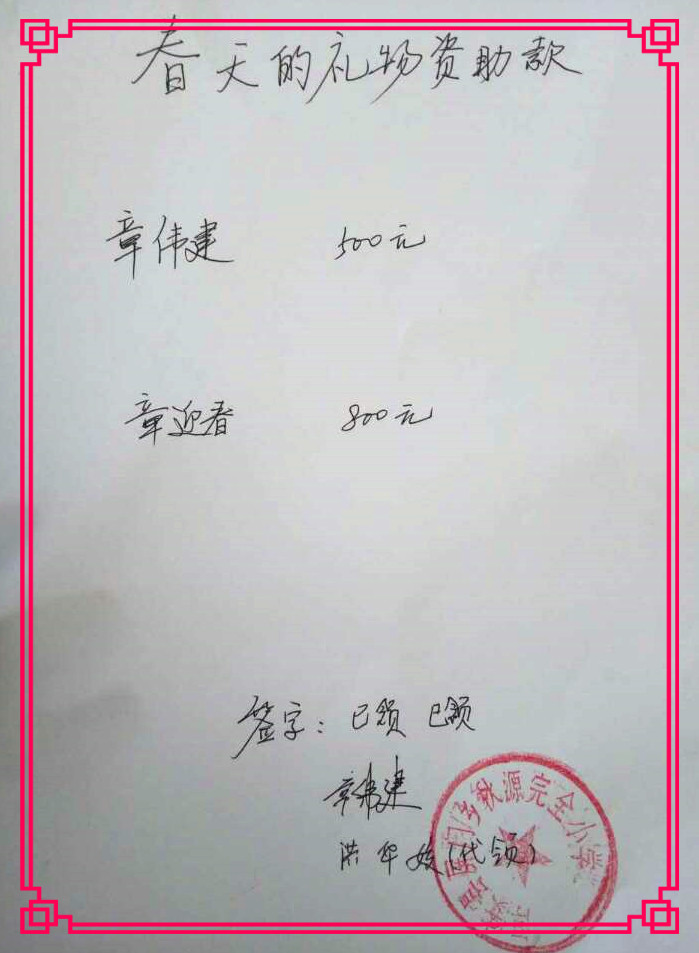 春天的礼物资助款
章伟建 500元
章迎春 800元
签字: 已领 已领
章伟建
洪华 (代领)
秋源完全小学